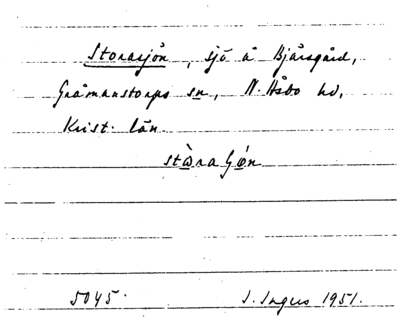 Storasjön, sjö å Bjärsgård,
Gråmanstorps sn, N. Åsbo hd,
Krist. län
stòraʃǿn
5045. I. Ingers 1951.